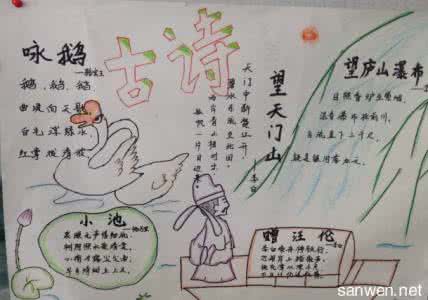 古诗
咏鹅
—骆宾王
鹅、鹅、鹅
曲项向天歌
白毛浮绿水
红掌拨清波
天门中断楚江开,
碧水东流至此回
两岸青山相对出
孤帆一片日边
望天门山
—李白
望庐山瀑布
日照香炉生紫烟,
遥看瀑布挂前川,
飞流直下三千尺,
疑是银河落九天。
小池
—杨万里
泉眼无声惜细流,
树阴照水爱晴柔,
小荷才露尖尖角,
早有蜻蜓立上头。
赠汪伦
李白乘舟将欲行,
忽闻岸上踏歌声,
桃花潭水深千尺
sanwen.net